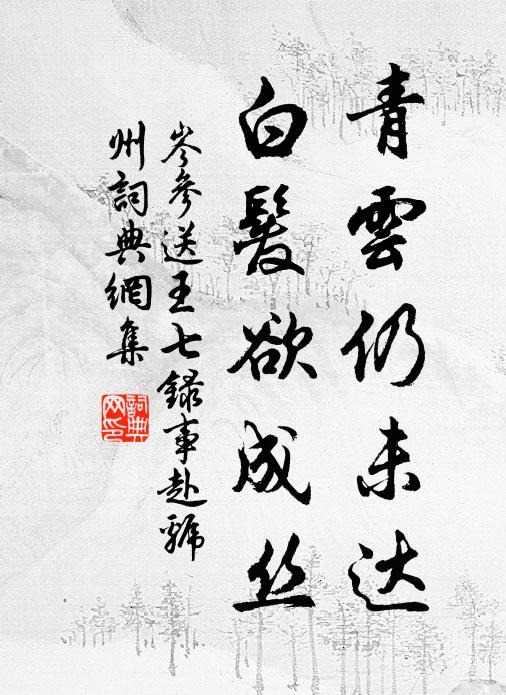 青雲仍未达
白髮欲成丝
岑參送王七録事赴虢
州詞典網集
詞典网印